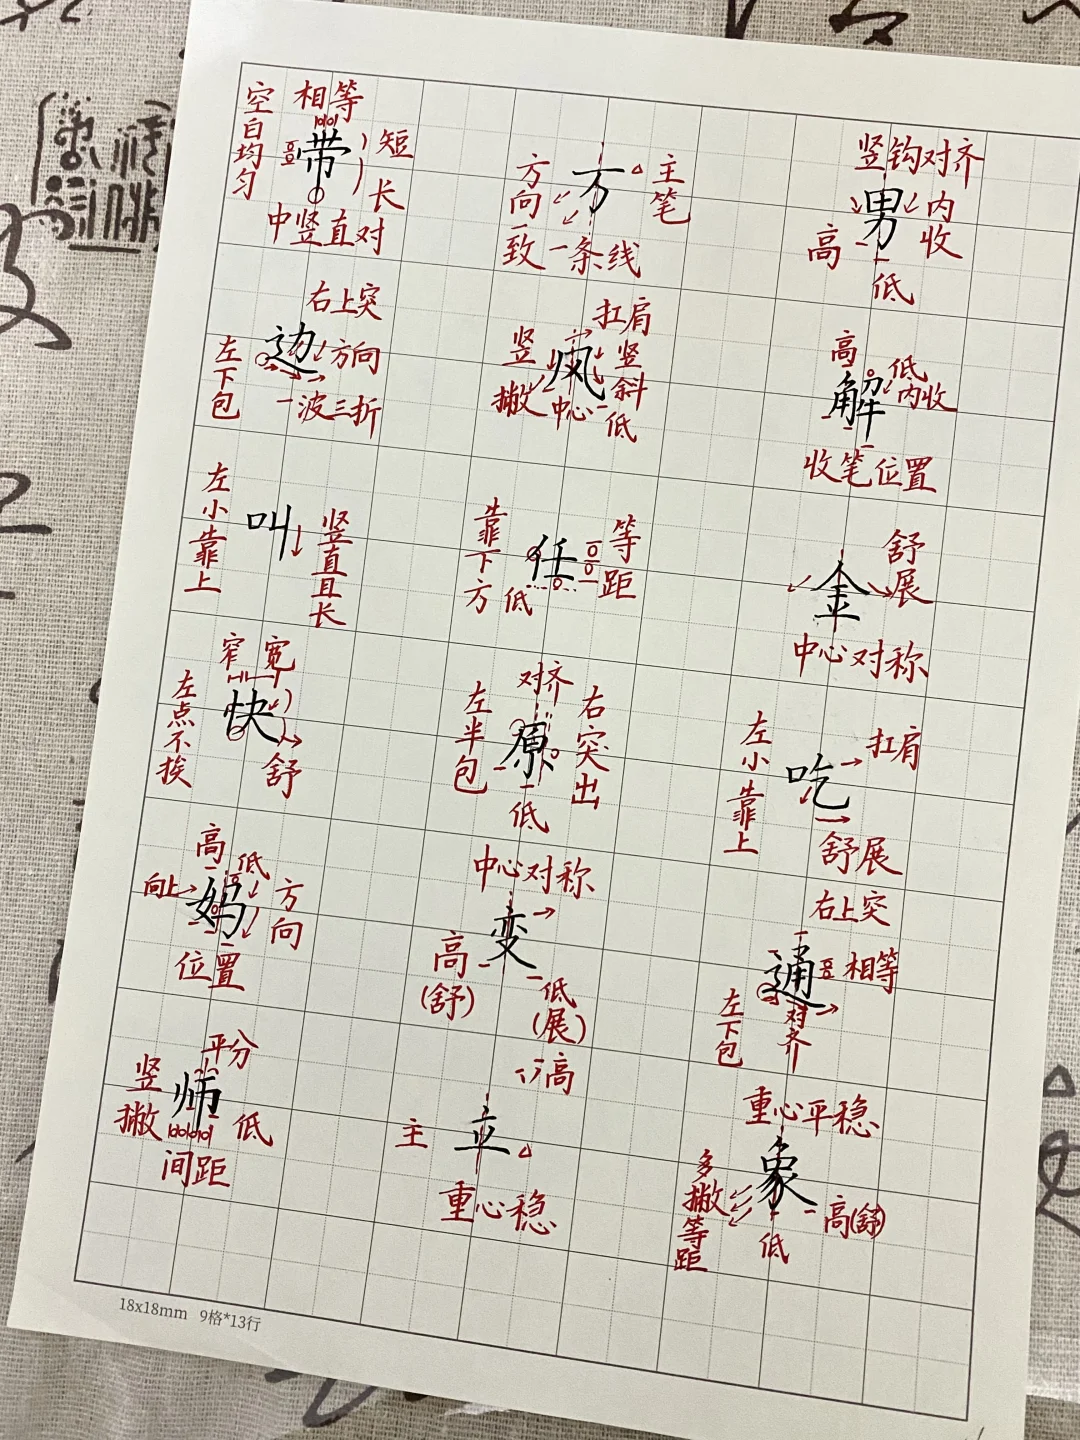 空白均匀
相等
带
短
长
中竖直对
方向一致
方
主笔
一条线
竖钩对齐
男
内收
高
低
右上突
左下包
边
方向
一波三折
扛肩
竖撇
疯
竖斜
中心
低
高
低
解
内收
收笔位置
左小靠上
叫
竖直且长
靠下方
任
等距
低
舒展
金
中心对称
窄 宽
左点不挨
快
舒
对齐
左半包
原
右突出
低
左小靠上
吃
扛肩
舒展
高
低
向上
妈
方向
位置
中心对称
变
高(舒)
低(展)
右上突
通
相等
左下包
对齐
平分
竖撇
师
低
间距
高
主
立
重心稳
重心平稳
象
多撇等距
高(舒)
低
18x18mm 9格*13行